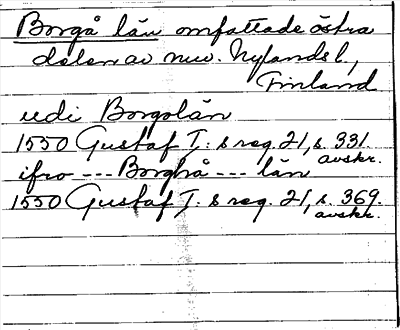 Borgå län omfattade östra
delen av nuv. Nylands l.,
Finland
udi Borgolän
1550 Gustaf I: s reg. 21, s. 331.
avskr.
ifro --- Borghå --- län
1550 Gustaf I: s reg. 21, s. 369.
avskr.